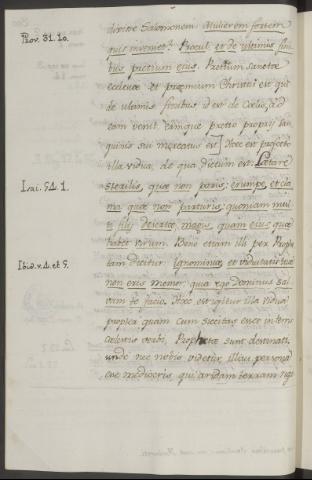 dicitur Salomonem Mulierem fortem
Prov. 31. 10.
quis inveniet? Procul et de ultimis fini-
bus pretium ejus. Pretium sanctæ
ecclesiæ et præmium Christus est qui
de ultimis finibus id est de Cœlo, ad
eam venit, eamque pretio proprii San-
guinis sui mercatus est. Hæc est profecto
illa vidua, de qua dictum est: Lætare
Isai. 54. 1.
sterilis, quæ non paris; erumpe, et cla-
ma quæ non parturis; quoniam mul-
ti filii desertæ, magis, quam ejus quæ
habet virum. Bene etiam illi per Proph-
Ibid. v. 4. et 5.
tam dicitur Ignominiæ et viduitatis tuæ
non eris memor, quia ego Dominus sal-
vam te facio. Hæc est igitur illa vidua
propter quam cum siccitas esset in terris
cælestis verbi, Prophetæ sunt destinati,
unde nec nobis videtur illam personam
esse mediocris, qui aridam terram